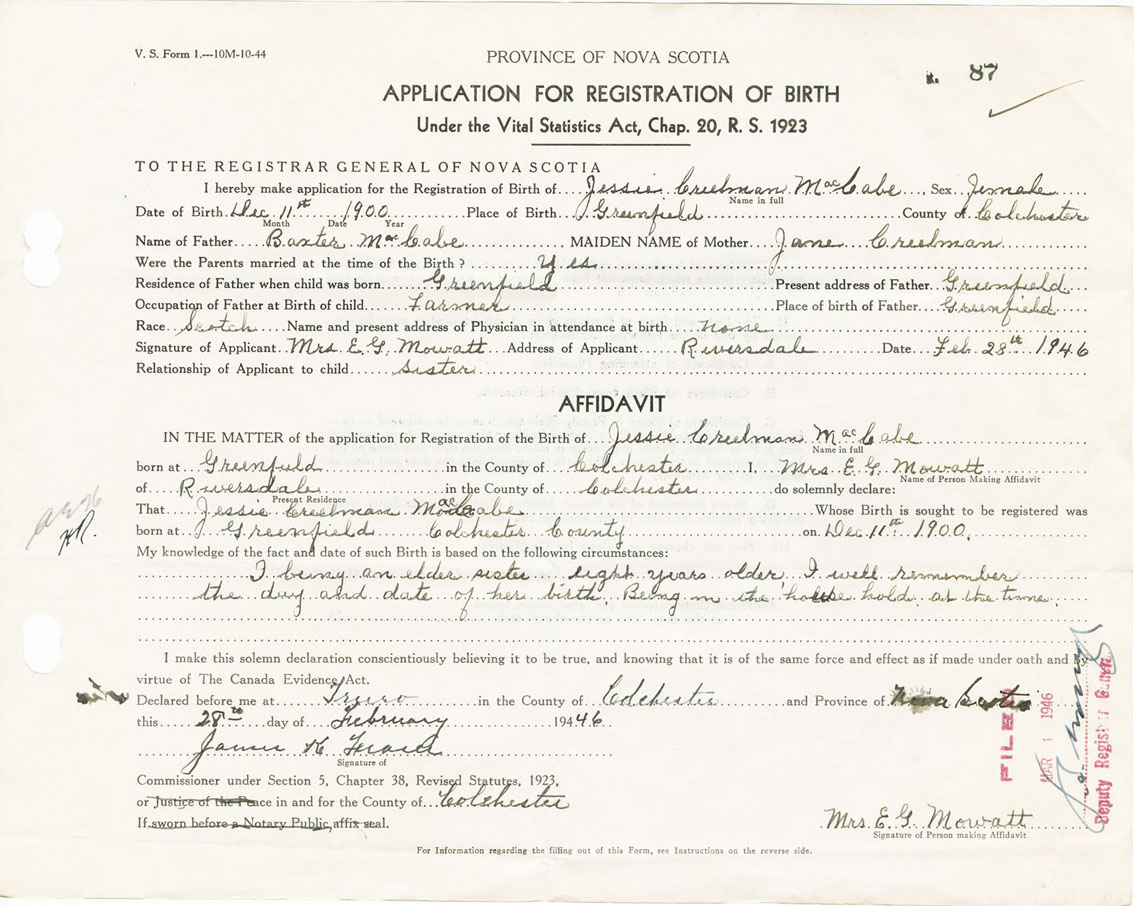 V. S. Form 1.—10M-10-44
PROVINCE OF NOVA SCOTIA
87
APPLICATION FOR REGISTRATION OF BIRTH
Under the Vital Statistics Act, Chap. 20, R. S. 1923
TO THE REGISTRAR GENERAL OF NOVA SCOTIA
I hereby make application for the Registration of Birth of Jessie Creelman MacCabe, Sex Female
Name in full
Date of Birth Dec 11th 1900 Place of Birth Greenfield County of Colchester
Month Date Year
Name of Father Baxter MacCabe MAIDEN NAME of Mother Jane Creelman
Were the Parents married at the time of the Birth? Yes
Residence of Father when child was born Greenfield Present address of Father Greenfield
Occupation of Father at Birth of child Farmer Place of birth of Father Greenfield
Race Scotch Name and present address of Physician in attendance at birth none
Signature of Applicant Mrs E G. Mowatt Address of Applicant Riversdale Date Feb. 28th 1946
Relationship of Applicant to child sister
AFFIDAVIT
IN THE MATTER of the application for Registration of the Birth of Jessie Creelman MacCabe
Name in full
born at Greenfield in the County of Colchester I, Mrs E G Mowatt
Name of Person Making Affidavit
of Riversdale in the County of Colchester do solemnly declare:
Present Residence
That Jessie Creelman MacCabe Whose Birth is sought to be registered was
born at Greenfield Colchester County on Dec 11th 1900.
My knowledge of the fact and date of such Birth is based on the following circumstances:
I being an elder sister eight years older I well remember
the day and date of her birth Being in the house hold at the time.
I make this solemn declaration conscientiously believing it to be true, and knowing that it is of the same force and effect as if made under oath and by
virtue of The Canada Evidence Act.
Declared before me at Truro in the County of Colchester and Province of Nova Scotia
this 28th day of February 19446
James K Fraser
Signature of
Commissioner under Section 5, Chapter 38, Revised Statutes, 1923,
or Justice of the Peace in and for the County of Colchester
If sworn before a Notary Public, affix seal.
Mrs. E. G. Mowatt
Signature of Person making Affidavit
For Information regarding the filling out of this Form, see Instructions on the reverse side.
FILED
MAR 1 1946
Deputy Registrar